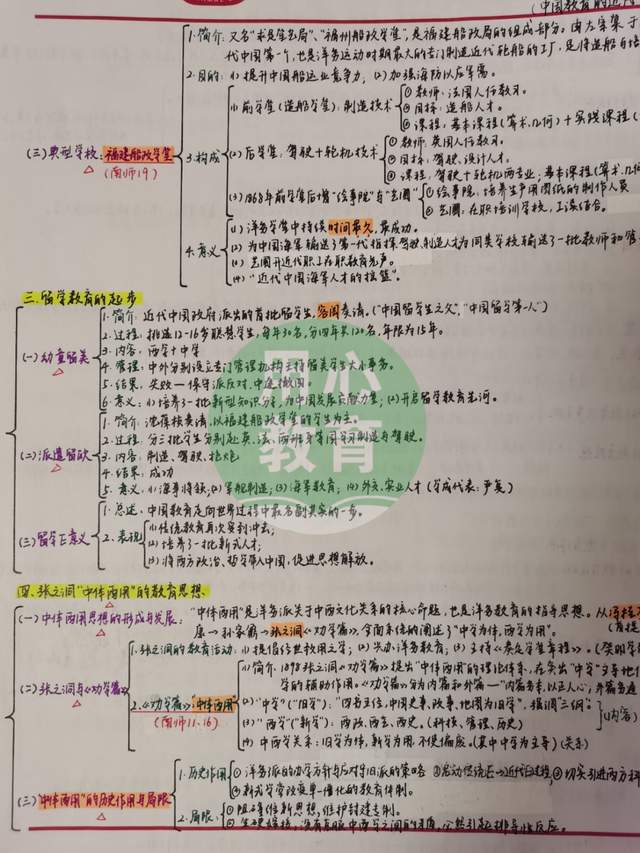 (中国教育的近代
1.简介:又名“求是堂艺局”、“福州船政学堂”,是福建船政局的组成部分。由左宗棠于
代中国第一个,也是洋务运动时期最大的专门制造近代轮船的工厂,是将造船与培
2.目的:(1)提升中国船运业竞争力,(2)加强海防以应军需。
(三)典型学校:福建船政学堂
(南师19)
3.构成
(1)前学堂(造船学堂):制造技术
①教师:法国人任教习。
②目标:造船人才。
③课程:基本课程(算术、几何)+实践课程(
(2)后学堂:驾驶+轮机技术
①教师:英国人任教习。
②目标:驾驶、设计人才。
③课程:驾驶+轮机两专业:基本课程(算术、几何
(3)1868年前学堂后增“绘事院”与“艺圃”
①绘事院:培养生产用图纸的制作人员
②艺圃:在职培训学校,工读结合。
4.意义
(1)洋务学堂中持续时间最久,最成功。
(2)为中国海军输送了第一代指挥、驾驶、制造人才为同类学校输送了一批教师和管
(3)艺圃开近代职工在职教育先声。
(4)“近代中国海军人才的摇篮”。
三.留学教育的起步
(一)幼童留美
1.简介:近代中国政府派出的首批留学生,容闳奏请,(“中国留学生之父”,“中国留学第一人”)
2.过程:挑选12-16岁聪慧学生,每年30名,分四年共120名,年限为15年。
3.内容:西学+中学
4.管理:中外分别设立专门管理机构主持留美学生大小事务。
5.结果:失败—保守派反对,中途撤回。
6.意义:(1)培养了一批新型知识分子,为中国发展贡献力量;(2)开启留学教育先河。
(二)派遣留欧
1.简介:沈葆桢奏请,以福建船政学堂的学生为主。
2.过程:分三批学生分别赴英、法、两班等国学习制造与驾驶。
3.内容:制造、驾驶、枪炮
4.结果:成功
5.意义:(1)海事将领;(2)军舰制造;(3)海军教育;(4)外交、实业人才(学成代表:严复)
(三)留学王意义
1.总述:中国教育走向世界过程中最名副其实的一步。
2.表现
(1)传统教育再次受到冲击;
(2)培养了一批新式人才;
(3)将西方政治、哲学带入中国,促进思想解放。
四.张之洞“中体西用”的教育思想、
(一)中体西用思想的形成与发展:“中体西用”是洋务派关于中西文化关系的核心命题,也是洋务教育的指导思想。从冯桂
→孙家鼐→张之洞《劝学篇》,全面系统的阐述了“中学为体,西学为用”。
(二)张之洞与《劝学篇》
1.张之洞的教育活动:(1)提倡经世致用之学;(2)兴办洋务教育;(3)主持《奏定学堂章程》。(癸卯学
2.《劝学篇》:“中体西用”
(南师11.16)
(1)简介:1898张之洞《劝学篇》提出“中体西用”的理论体系,在突出“中学”主导地位
学的辅助作用。《劝学篇》分为内篇和外篇—“内篇务本,以正人心;外篇务通
(2)“中学”(“旧学”):“四书五经,中国史事、政事、地图为旧学”,强调“三纲”
(3)“西学”(“新学”):西政、西艺、西史。(科技、管理、历史)
(内容)
(4)中西学关系:旧学为体,新学为用,不使偏废。(其中中学为主导)(关系)
(三)“中体西用”的历史作用与局限
1.历史作用
①洋务派的办学方针与应对守旧派的策略 ②启动传统至→近代化过程,③切实引进西方科
④新式学堂改变单一僵化的教育体制。
2.局限:
①阻碍维新思想,维护封建专制。
②生硬嫁接,没有克服中西学之间的矛盾,必然引起排异性反应。
思心
教育